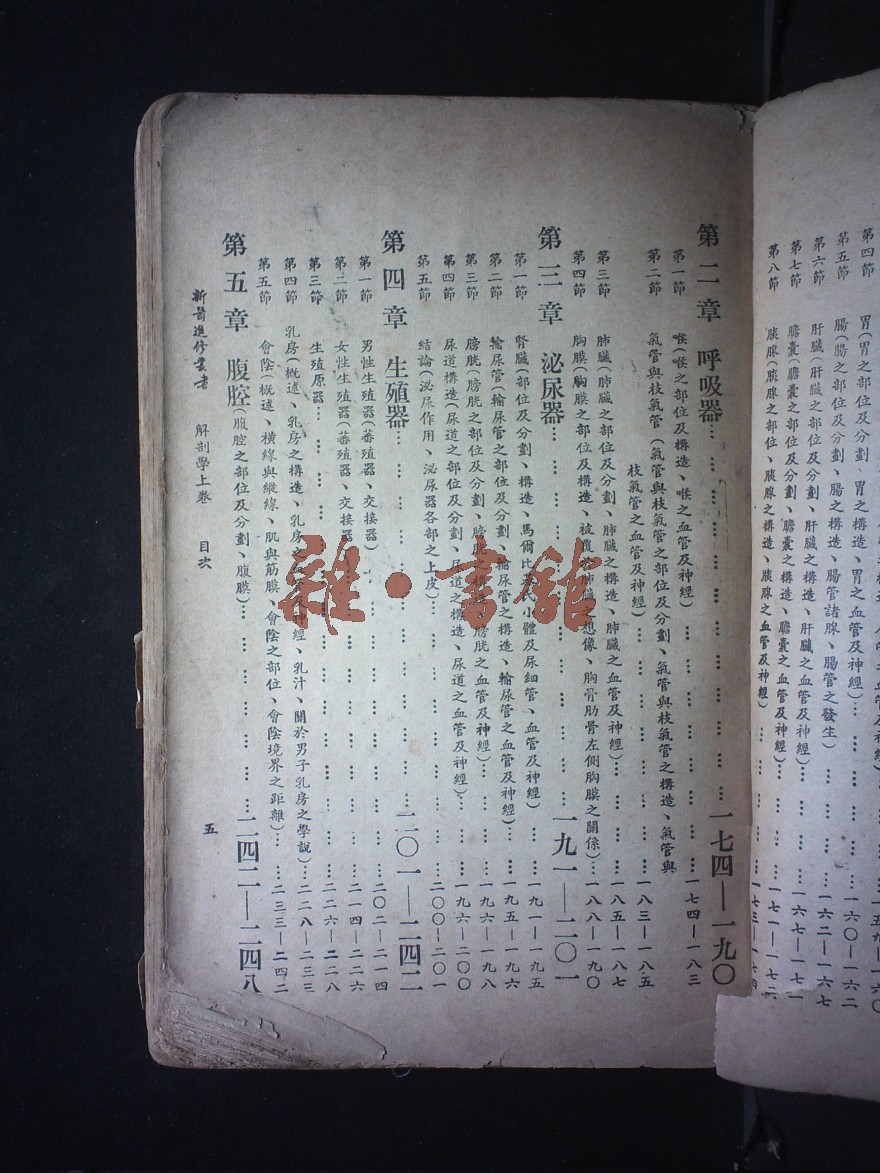 第四節 胃(胃之部位及分劃、胃之構造、胃之血管及神經)
第五節 腸(腸之部位及分劃、腸之構造、腸管諸腺、腸管之發生)…一六〇—一六二
第六節 肝臟(肝臟之部位及分劃、肝臟之構造、肝臟之血管及神經)…一六二—一六七
第七節 膽囊(膽囊之部位及分劃、膽囊之構造、膽囊之血管及神經)…一六七—一七一
第八節 胰腺(胰腺之部位、胰腺之構造、胰腺之血管及神經)…一七三—一七四
第二章 呼吸器…一七四—一九〇
第一節 喉(喉之部位及構造、喉之血管及神經)…一七四—一八三
第二節 氣管與枝氣管(氣管與枝氣管之部位及分劃、氣管與枝氣管之構造、氣管與
枝氣管之血管及神經)…一八三—一八五
第三節 肺臟(肺臟之部位及分劃、肺臟之構造、肺臟之血管及神經)…一八五—一八七
第四節 胸膜(胸膜之部位及構造、被覆於肺臟之想像、胸骨肋骨左側胸膜之關係)…一八八—一九〇
第三章 泌尿器…一九一—二〇一
第一節 腎臟(部位及分劃、構造、馬爾比基小體及尿細管、血管及神經)…一九一—一九五
第二節 輸尿管(輸尿管之部位及分劃、輸尿管之構造、輸尿管之血管及神經)…一九五—一九六
第三節 膀胱(膀胱之部位及分劃、膀胱之構造、膀胱之血管及神經)…一九六—一九八
第四節 尿道構造(尿道之部位及分劃、尿道之構造、尿道之血管及神經)…一九六—二〇〇
第五節 結論(泌尿作用、泌尿器各部之上皮)…二〇〇—二〇一
第四章 生殖器…二〇一—二四二
第一節 男性生殖器(蕃殖器、交接器)…二〇二—二一四
第二節 女性生殖器(蕃殖器、交接器)…二一四—二二六
第三節 生殖原器…二二六—二二八
第四節 乳房(概述、乳房之構造、乳房之血管及神經、乳汁、關於男子乳房之學說)…二二八—二三三
第五節 會陰(概述、橫線與縱線、肌與筋膜、會陰之部位、會陰境界之距離)…二三三—二四二
第五章 腹腔(腹腔之部位及分劃、腹膜)…二四二—二四八
新醫進修叢書 解剖學上卷 目次 五
雜·書館